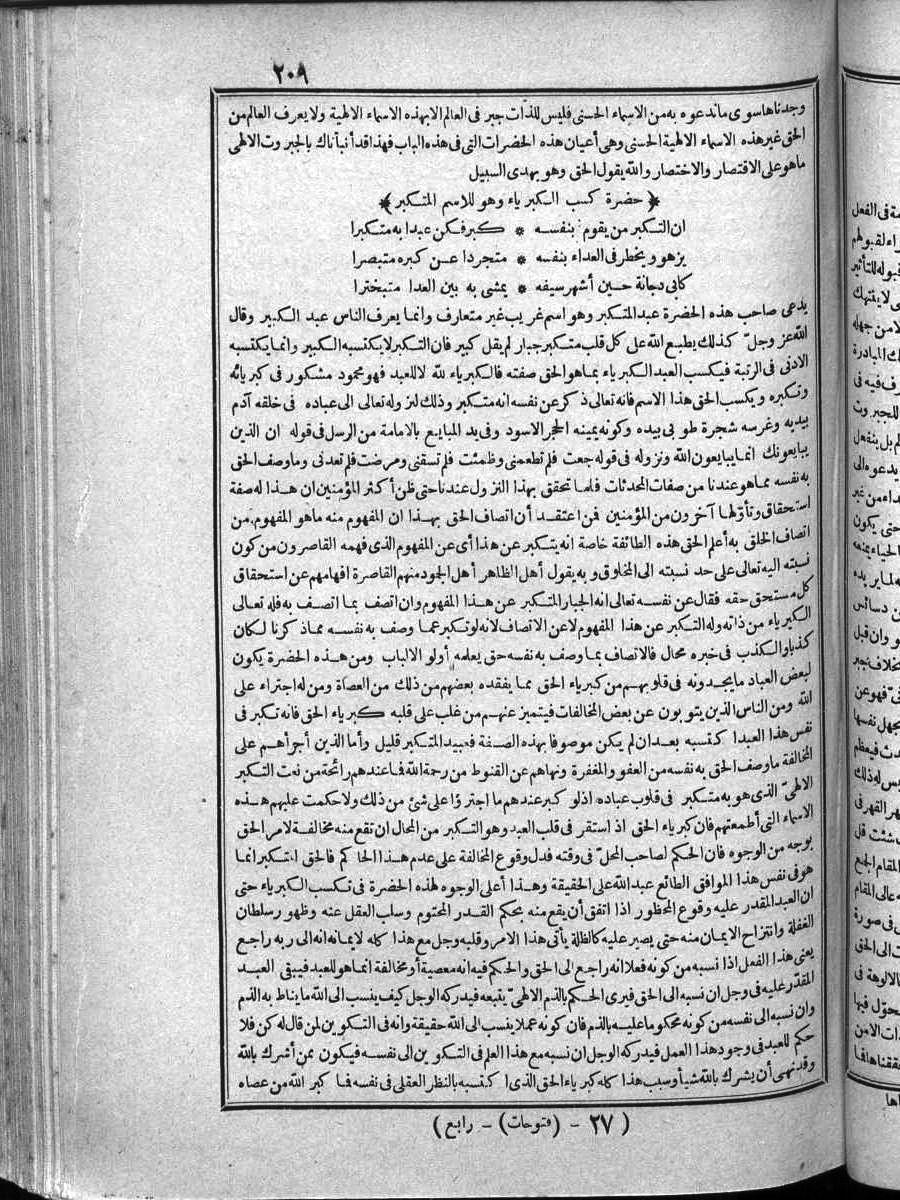 ٢٠٩
وجدناها سوى ما ندعوه به من الاسماء الحسنى فليس للذات جبر فى العالم الا بهذه الاسماء الالهية ولا يعرف العالم من
الحق غير هذه الاسماء الالهية الحسنى وهى أعيان هذه الحضرات التى فى هذه الباب فهذا قد أنبأناك بالجبروت الالهى
ما هو على الاقتصار والاختصار والله يقول الحق وهو يهدى السبيل
﴿ حضرة كسب الكبرياء وهو للاسم المتكبر ﴾
ان التكبر من يقوم بنفسه * كبر فكن عبدا به متكبرا
يزهو ويخطر فى العداء بنفسه * متجردا عن كبره متبصرا
كابى دجانة حسين أشهر سيفه * يمشى به بين العدا متبخترا
يدعى صاحب هذه الحضرة عبد المتكبر وهو اسم غريب غير متعارف وانما يعرف الناس عبد الكبير وقال
الله عز وجل كذلك يطبع الله على كل قلب متكبر جبار لم يقل كبير فان التكبر لا يكتسبه الكبير وانما يكتسبه
الادنى فى الرتبة فيكسب العبد الكبرياء بما هو الحق صفته فالكبرياء لله لا للعبد فهو محمود مشكور فى كبريائه
وتكبره ويكسب الحق هذا الاسم فانه تعالى ذكر عن نفسه انه متكبر وذلك لنزوله تعالى الى عباده فى خلقه آدم
بيديه وغرسه شجرة طوبى بيده وكونه يمينه الحجر الاسود وفى يد المبايع بالامامة من الرسل فى قوله ان الذين
يبايعونك انما يبايعون الله ونزوله فى قوله جعت فلم تطعمنى وظمئت فلم تسقنى ومرضت فلم تعدنى وما وصف الحق
به نفسه مما هو عندنا من صفات المحدثات فلما تحقق بهذا النزول عندنا حتى ظن أكثر المؤمنين ان هذا له صفة
استحقاق وتأولها آخرون من المؤمنين فمن اعتقد أن اتصاف الحق بهذا ان المفهوم منه ما هو المفهوم من
اتصاف الخلق به أعلم الحق هذه الطائفة خاصة انه يتكبر عن هذا أى عن المفهوم الذى فهمه القاصرون من كون
نسبته اليه تعالى على حد نسبته الى المخلوق وبه يقول أهل الظاهر أهل الجود منهم القاصرة افهامهم عن استحقاق
كل مستحق حقه فقال عن نفسه تعالى انه الجبار المتكبر عن هذا المفهوم وان اتصف بما اتصف به فله تعالى
الكبرياء من ذاته وله التكبر عن هذا المفهوم لا عن الاتصاف لانه لو تكبر عما وصف به نفسه مما ذكرنا لكان
كذبا والكذب فى خبره محال فالاتصاف بما وصف به نفسه حق يعلمه أولو الالباب ومن هذه الحضرة يكون
لبعض العباد ما يجدونه فى قلوبهم من كبرياء الحق مما يفقده بعضهم من ذلك من العصاة ومن له اجتراء على
الله ومن الناس الذين يتوبون عن بعض المخالفات فيتميز عنهم من غلب على قلبه كبرياء الحق فانه تكبر فى
نفس هذا العبد اكتسبه بعد ان لم يكن موصوفا بهذه الصفة فعبيد المتكبر قليل وأما الذين أجرأهم على
المخالفة ما وصف الحق به نفسه من العفو والمغفرة ونهاهم عن القنوط من رحمة الله فما عندهم رائحة من نعت التكبر
الالهى الذى هو به متكبر فى قلوب عباده اذ لو كبر عندهم ما اجترؤا على شئ من ذلك ولا حكمت عليهم هذه
الاسماء التى أطمعتهم فان كبرياء الحق اذ استقر فى قلب العبد وهو التكبر من المحال ان تقع منه مخالفة لامر الحق
بوجه من الوجوه فان الحكم لصاحب المحل فى وقته فدل وقوع المخالفة على عدم هذا الحاكم فالحق المتكبر انما
هو فى نفس هذا الموافق الطائع عبد الله على الحقيقة وهذا أعلى الوجوه لهذه الحضرة فى تكسب الكبرياء حتى
ان العبد المقدر عليه وقوع المحظور اذا اتفق أن يقع منه بحكم القدر المحتوم وسلب العقل عنه وظهور سلطان
الغفلة وانتزاح الايمان منه حتى يصير عليه كالظلة يأتى هذا الامر وقلبه وجل مع هذا كله لايمانه انه الى ربه راجع
يعنى هذا الفعل اذا نسبه من كونه فعلا انه راجع الى الحق والحكم فيه انه معصية أو مخالفة انما هو للعبد فيبقى العبد
المقدر عليه فى وجل ان نسبه الى الحق فيرى الحكم بالذم الالهى يتبعه فيدركه الوجل كيف ينسب الى الله ما يناط به الذم
وان نسبه الى نفسه من كونه محكوما عليه بالذم فان كونه عملا ينسب الى الله حقيقة وانه فى التكوين لمن قال له كن فلا
حكم للعبد فى وجود هذا العمل فيدركه الوجل ان نسبه مع هذا العلم فى التكوين الى نفسه فيكون ممن أشرك بالله
وقد نهى أن يشرك بالله شيأ وسبب هذا كله كبرياء الحق الذى اكتسبه بالنظر العقلى فى نفسه فما كبر الله من عصاه
( ٢٧ - (فتوحات) - رابع )